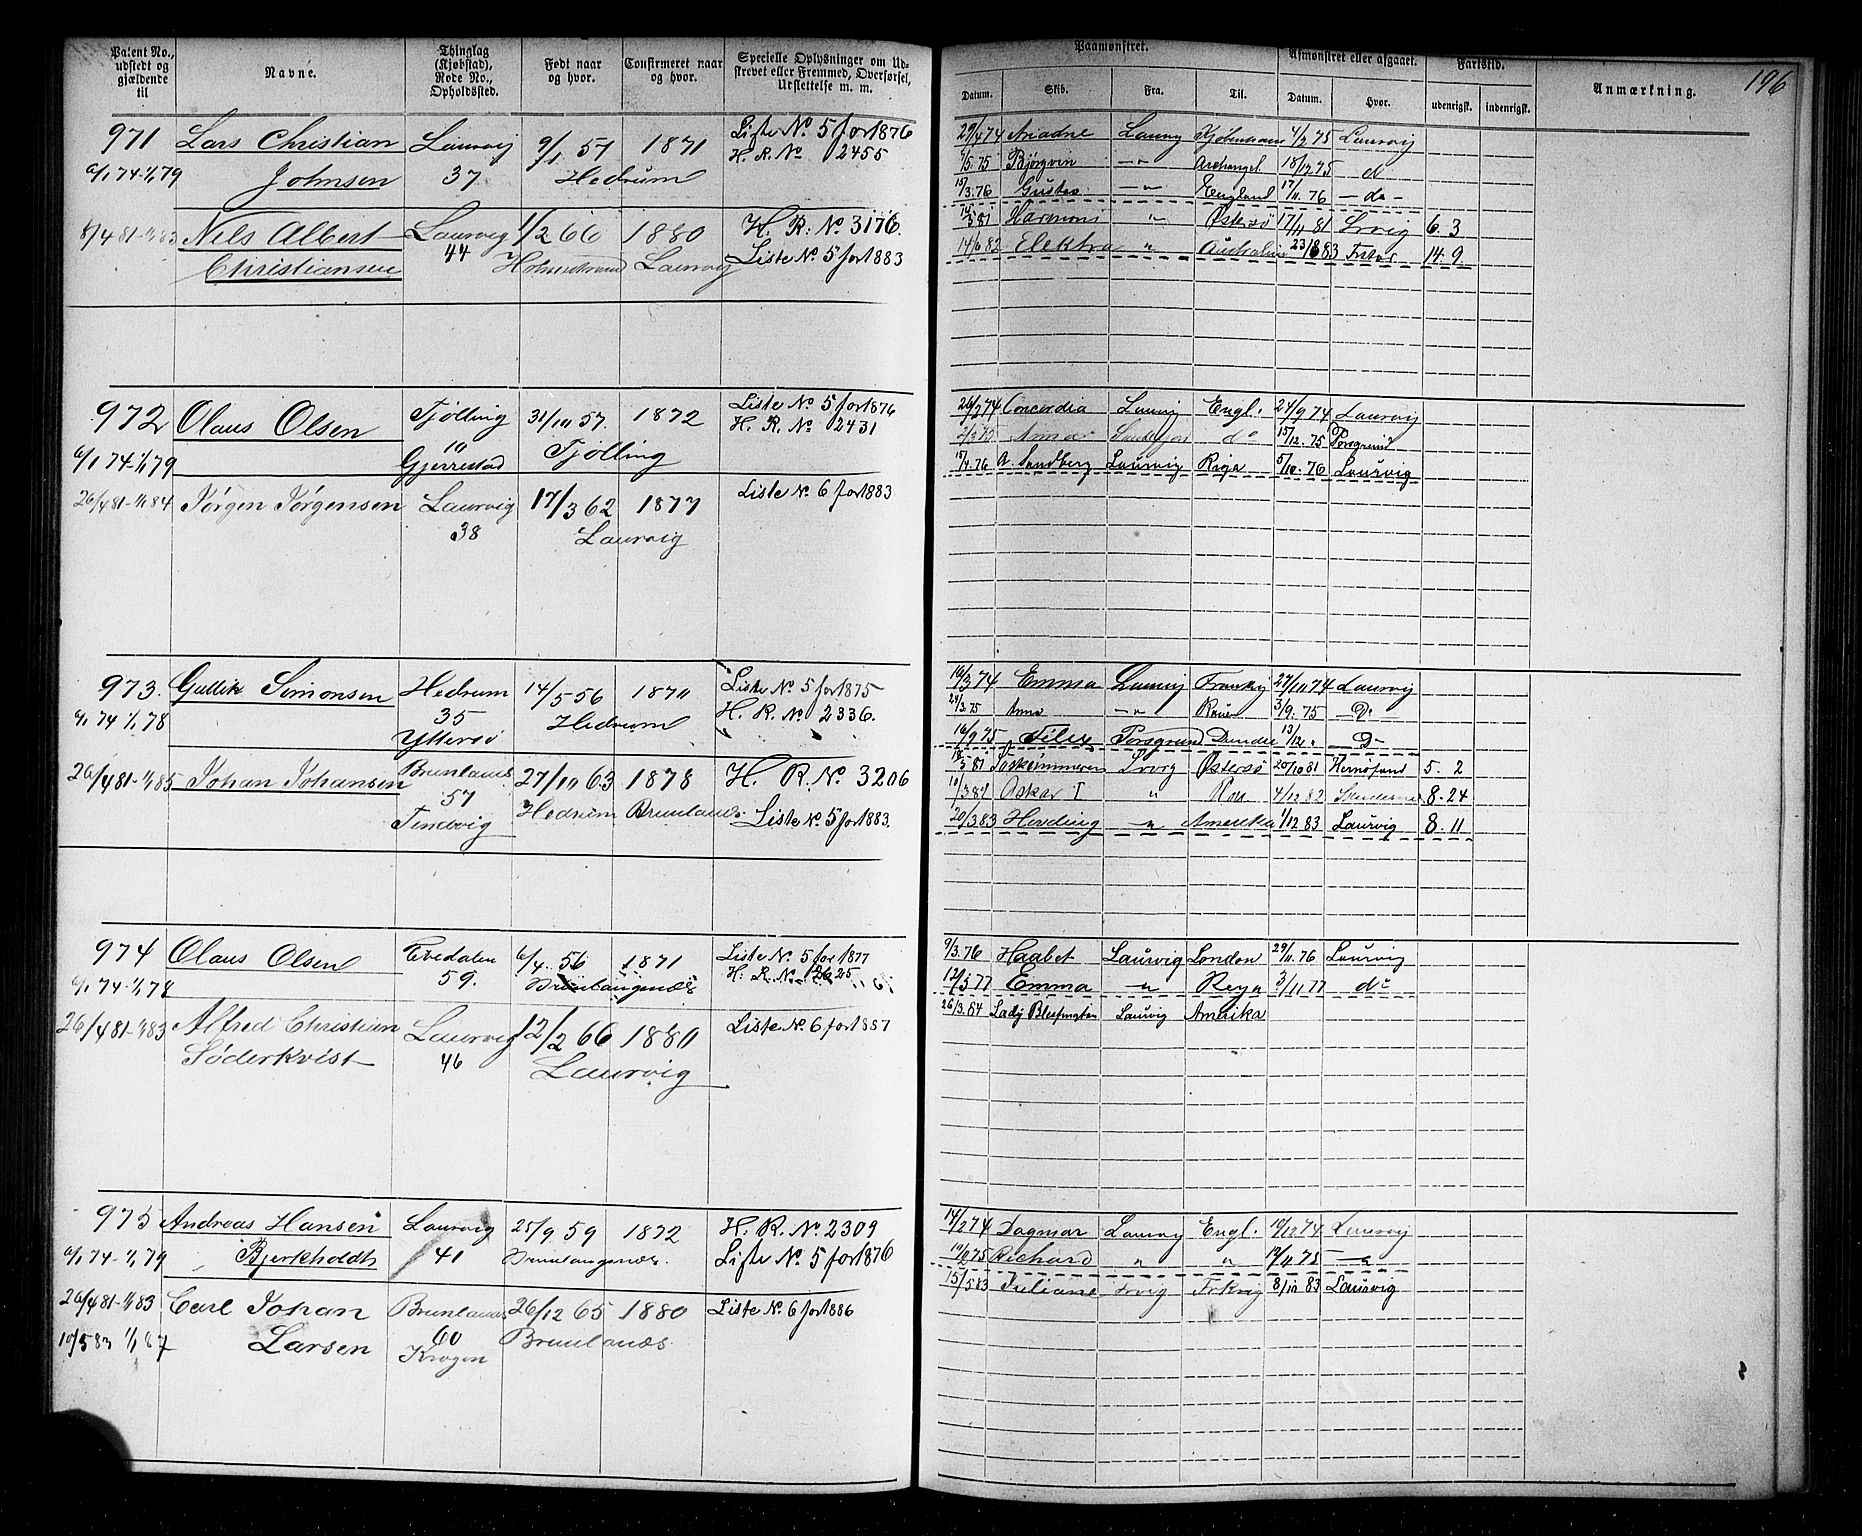 Patent No., udstedt og gjældende til
Navne.
Thinglag (Kjøbstad), Rode No., Opholdssted.
Født naar og hvor.
Confirmeret naar og hvor.
Specielle Oplysninger om Udskrevet eller Fremmed, Overførsel, Udslettelse m. m.
971 Lars Christian Laurvig 9/1 57 1871 Liste No 5 for 1876
6/1 74-1/1 79 Johnsen 37 Hedrum H. R. No 2455
8/4 81-1/1 83 Nils Albert Laurvig 1/2 66 1880 H. R. No 3176.
Christiansen 44 Holmestrand Laurvig Liste No 5 for 1883
972 Olaus Olsen Tjølling 31/10 57. 1872 Liste No 5 for 1876
10 H. R. No 2431
6/1 74-1/1 79 Gjerrestad Tjølling
26/4 81-1/1 84 Jørgen Jørgensen Laurvig 17/3 62 1877 Liste No 6 for 1883
38 Laurvig
973. Gullik Simonsen Hedrum 14/5 56 1870 Liste No 5 for 1875
6/1 74 1/1 78 35 Hedrum H. R. No 2336.
Yttersø
26/4 81-1/1 85 Johan Johansen Brunlanæs 27/10 63 1878 H. R. No 3206
57 Hedrum Brunlanæs
Tindvig Liste No 5 for 1883.
974 Olaus Olsen Qvedalen 6/4 56 1871 Liste No 5 for 1877
6/1 74-1/1 78 59. Brunlaugenæs H. R. No 2625
26/4 81-1/1 83 Alfred Christian Laurvig 12/2 66 1880 Liste No 6 for 1887
Søderkvist 46 Laurvig
975 Andreas Hansen Laurvig 25/9 59 1872 H. R. No 2309
6/1 74-1/1 79 Bjerkholdt 41 Brunlaugenæs. Liste No 5 for 1876
26/4 81-1/1 83 Carl Johan Brunlanæs 26/12 65 1880 Liste No 6 for 1886
10/5 83 1/1 87 Larsen 60 Brunlanæs
Krogen
196
Paamønstret.
Afmønstret eller afgaaet.
Fartstid.
Anmærkning.
Datum. Skib. Fra. Til. Datum. Hvor. udenrigsk. indenrigsk.
29/4 74 Ariadne Laurvig Kjøbenhavn 4/2 75 Laurvig
/5 75 Bjørgvin -"- Archangel 18/12 75 d
15/3 76 Gustav -"- England 17/11 76 -do-
/3 81 Harmoni " Østersø 17/11 81 Lrvig 6. 3
14/6 82 Elektra " Australien 23/ 83 14. 9.
26/2 74 Concordia Laurvig Engl. 24/9 74 Laurvig
Anna do 15/12. 75 Porsgrund
15/4 76 A Sandberg Laurvig Riga 5/10. 76 Laurvig
19/3 74 Emma Laurvig 27/11 74 Laurvig
24/3 75 Anna -"- 3/9. 75 -Do-
16/9 75 Felix Porsgrund Dundee 13/12 " -D-
/3 81 Lrvig Østersø 20/10 81 Hernøsand 5. 2
10/3 82 Oskar I " 4/12 82 8. 24
20/3 83 Høvding -"- Amerika 1/12 83 Laurvig 8. 11
9/3. 76 Haabet Laurvig London 29/11. 76 Laurvig
12/3 77 Emma -"- Riga 3/11 77 do
26/3. 84 Lady Blessington Laurvig Amerika
14/2 74 Dagmar Laurvig Engl. 10/12 74 Laurvig
19/2 75 Richard " " 14/11 75 -"-
15/5 83 Juliane Lrvig 8/10 83 Laurvig